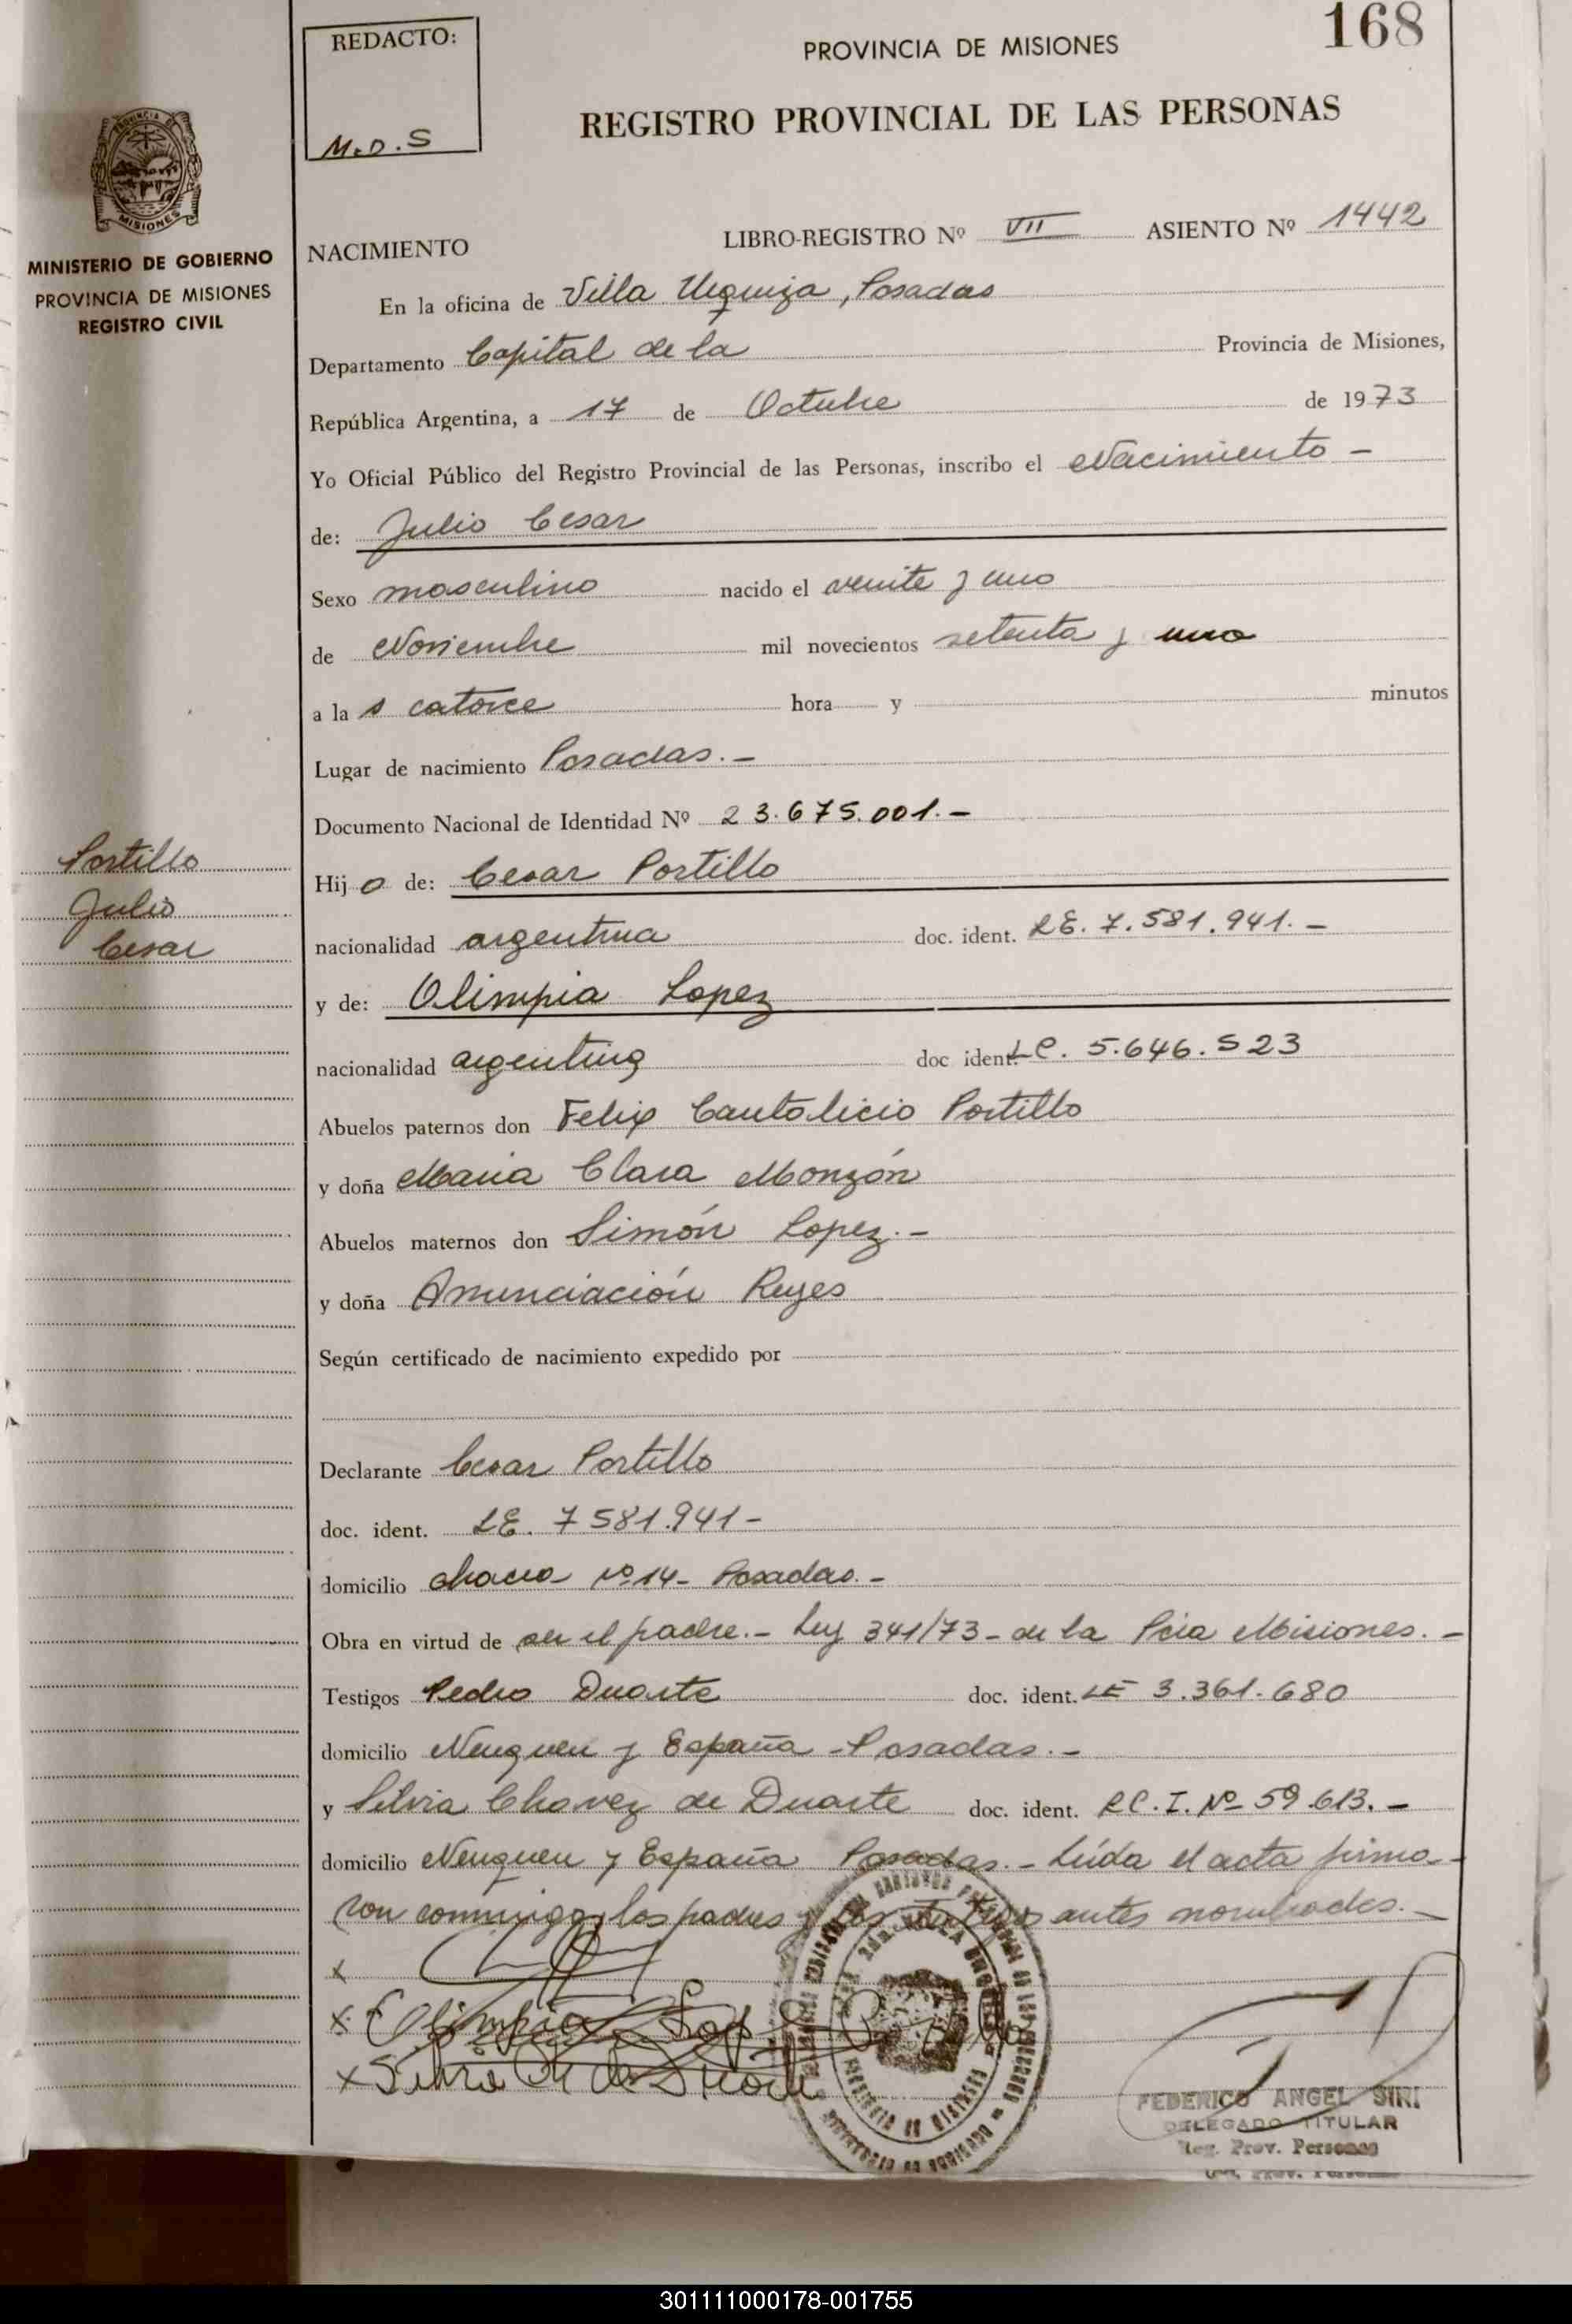 168
REDACTO:
M.D.S
PROVINCIA DE MISIONES
REGISTRO PROVINCIAL DE LAS PERSONAS
MISIONES
MINISTERIO DE GOBIERNO
PROVINCIA DE MISIONES
REGISTRO CIVIL
NACIMIENTO
LIBRO-REGISTRO Nº VII ASIENTO Nº 1442
En la oficina de Villa Urquiza, Posadas
Departamento Capital de la Provincia de Misiones,
República Argentina, a 17 de Octubre de 1973
Yo Oficial Público del Registro Provincial de las Personas, inscribo el Nacimiento -
de: Julio Cesar
Sexo masculino nacido el veinte y uno
de Noviembre mil novecientos setenta y uno
a la s catorce hora y minutos
Lugar de nacimiento Posadas.-
Documento Nacional de Identidad Nº 23.675.001.-
Portillo
Julio
Cesar
Hij o de: Cesar Portillo
nacionalidad argentina doc. ident. LE. 7.581.941.-
y de: Olimpia Lopez
nacionalidad argentina doc ident. LC. 5.646.523
Abuelos paternos don Felix Cantalicio Portillo
y doña Maria Clara Monzón
Abuelos maternos don Simón Lopez.-
y doña Anunciación Reyes
Según certificado de nacimiento expedido por
Declarante Cesar Portillo
doc. ident. LE. 7581.941-
domicilio chacra Nº 14- Posadas.-
Obra en virtud de ser el padre.- Ley 341/73- de la Pcia Misiones.-
Testigos Pedro Duarte doc. ident. LE 3.361.680
domicilio Neuquen y España -Posadas.-
y Silvia Chavez de Duarte doc. ident. RC.I. Nº 59.613.-
domicilio Neuquen y España Posadas.- Leída el acta firma-
ron conmigo, los padres y los testigos antes nombrados.-
x
x Olimpia Lopez
x Silvia Ch de Duarte
FEDERICO ANGEL SIRI
DELEGADO TITULAR
Reg. Prov. Personas
301111000178-001755